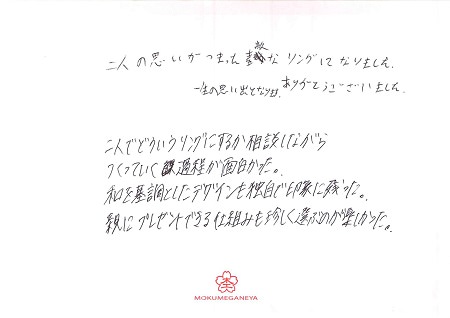 二人の思いがつまった素敵なリングになりました。
一生の思い出となります。ありがとうございました。
二人でどういうリングにするか相談しながら
つくっていく過程が面白かった。
和を基調としたデザインも独自で印象に残った。
親にプレゼントできる仕組みも珍しく選ぶのが楽しかった。
MOKUMEGANEYA